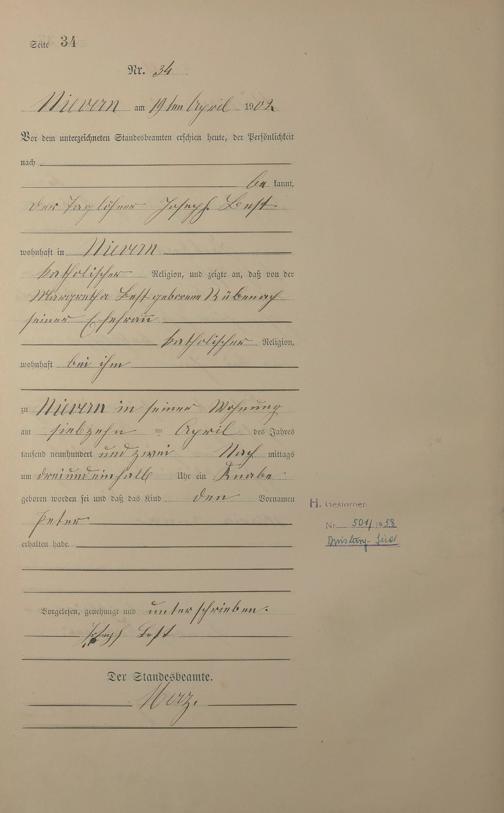 Seite 34
Nr. 34
Nievern am 19ten April 1902
Vor dem unterzeichneten Standesbeamten erschien heute, der Persönlichkeit
nach
be kannt,
der Taglöhner Joseph Best
wohnhaft in Nievern
katholischer Religion, und zeigte an, daß von der
Margretha Best geborene Kübenach
seiner Ehefrau
katholischer Religion,
wohnhaft bei ihm
zu Nievern in seiner Wohnung
am siebzehn = April des Jahres
tausend neunhundert und zwei Nach mittags
um dreiundeinhalb Uhr ein Knabe
geboren worden sei und daß das Kind den Vornamen
Peter
erhalten habe.
H. Gestorben
Nr. 501/1958
Duisburg-Süd
Vorgelesen, genehmigt und unterschrieben.
Joseph Best
Der Standesbeamte.
Merz.